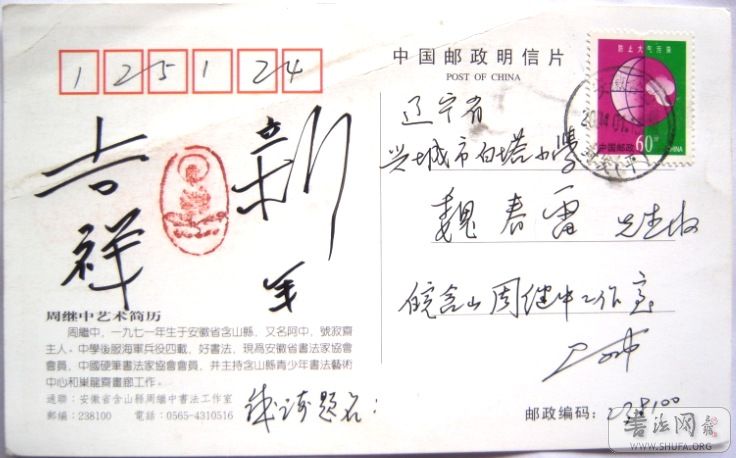 1 2 5 1 2 4
中国邮政明信片
POST OF CHINA
防止大气污染
中国邮政 60分 CHINA
2004.01.1
辽宁省
兴城市白塔小學
魏春雷 先生收
皖含山周继中工作室
邮政编码: 238100
新年
吉祥
周继中艺术简历
周繼中,一九七一年生于安徽省含山縣,又名阿中,號寂齋
主人。中學後服海軍兵役四載,好書法,現爲安徽省書法家協會
會員,中國硬筆書法家協會會員,并主持含山縣青少年書法藝術
中心和巢龍齋畫廊工作。
通聯:安徽省含山縣周繼中書法工作室
郵編:238100 電話:0565-4310516
題名:
書法网
WWW.SHUFA.ORG